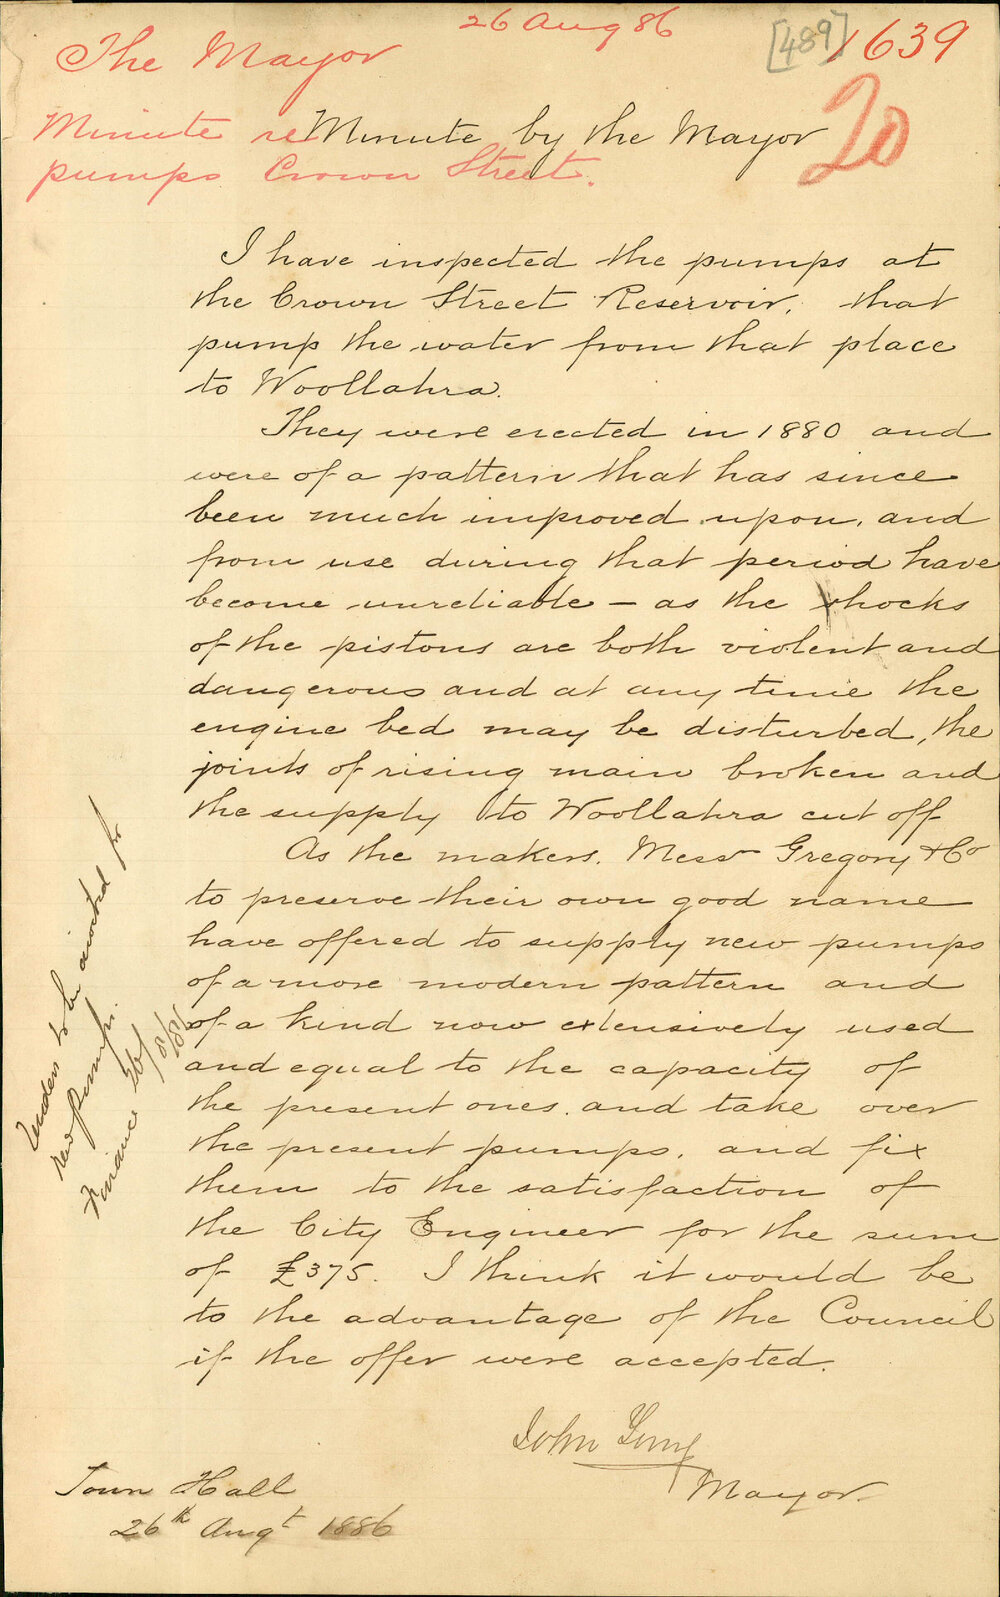 26 Aug 86
[489]
1639
The Mayor
20
Minute re
pumps Crown Street.
Minute by the Mayor
I have inspected the pumps at
the Crown Street Reservoir, that
pump the water from that place
to Woollahra.
They were erected in 1880 and
were of a pattern that has since
been much improved upon, and
from use during that period have
become unreliable - as the shocks
of the pistons are both violent and
dangerous and at any time the
engine bed may be disturbed, the
joints of rising main broken and
the supply to Woollahra cut off
As the makers. Messrs Gregory & Co
to preserve their own good name
have offered to supply new pumps
of a more modern pattern and
of a kind now extensively used
and equal to the capacity of
the present ones. and take over
the present pumps. and fix
them to the satisfaction of
the City Engineer for the sum
of £375. I think it would be
to the advantage of the Council
if the offer were accepted.
John Young
Mayor.
Town Hall
26th Augt 1886
Tenders to be invited for
new pumps.
Finance 26/8/86